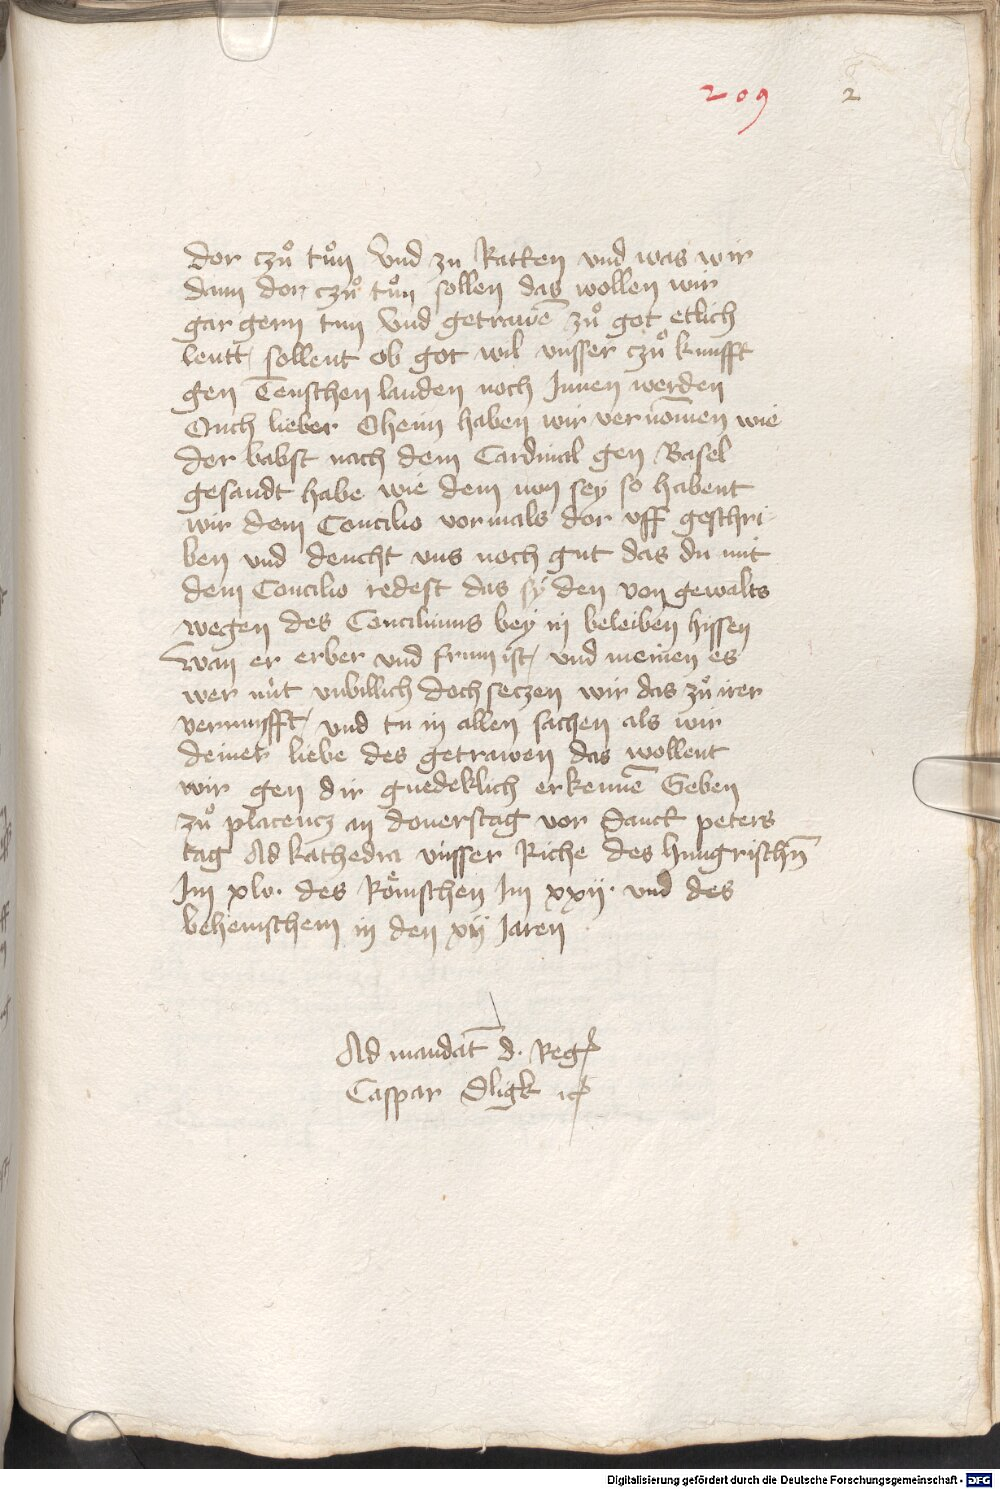 209 2
dor czuͦ tuͦn Vnd zu Ratten vnd was wir
dann dor czuͦ tuͦn sollen das wollen wir
gar gern tun Vnd getrawē zuͦ got etlich
leutt sollent ob got wil vnsser czuͦ kunfft
gen Teuschen landen noch Innen werden
Ouch lieber Oheim haben wir vernōmen wie
der babst nach dem Cardinal gen Basel
gesandt habe wie dem nun sey so habent
wir dem Concilio vormals dor vff geschri-
ben vnd deucht vns noch gut das du mit
dem Concilio redest das sy den von gewalts
wegen des Conciliums bey in beleiben hissen
Wan er erber vnd frum ist / vnd meinen es
wer nit vnbillich doch seczen wir das zuͦ irer
vernunfft / vnd tu in allen sachen als wir
deiner liebe des getrawen das wollent
wir gen dir gnedeklich erkennē Geben
zuͦ placencz an donerstag vor Sanct peters
tag Ad kathedra vnsser Riche des hungrischn̄
Im xlv. des Römschen Im xxij. vnd des
behemschem in den xij Jaren
Ad mandat̄ d. Reg
Caspar Sligk
Digitalisierung gefördert durch die Deutsche Forschungsgemeinschaft - DFG